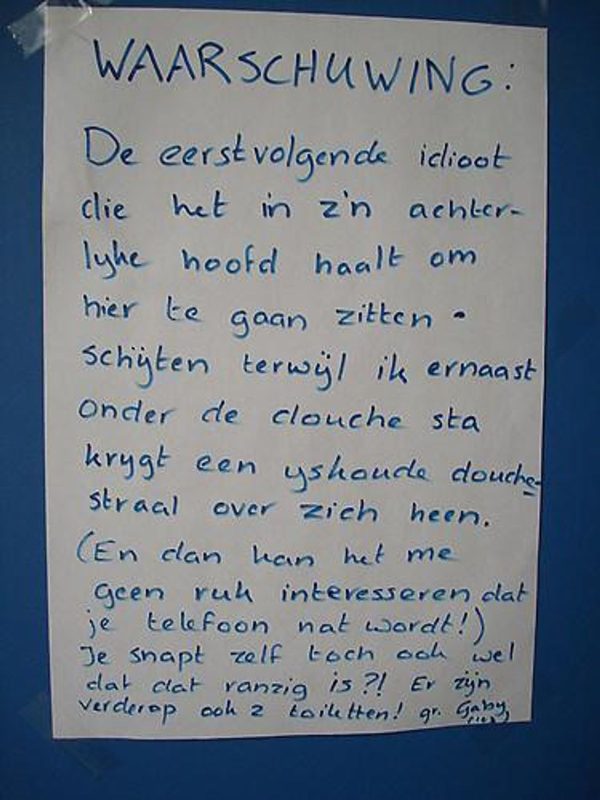 WAARSCHUWING:
De eerstvolgende idioot
die het in z'n achter-
lyke hoofd haalt om
hier te gaan zitten
schijten terwijl ik ernaast
onder de douche sta
krygt een yskoude douche-
straal over zich heen.
(En dan kan het me
geen ruk interesseren dat
je telefoon nat wordt!)
Je snapt zelf toch ook wel
dat dat ranzig is?! Er zijn
verderop ook 2 toiletten! gr. Gaby